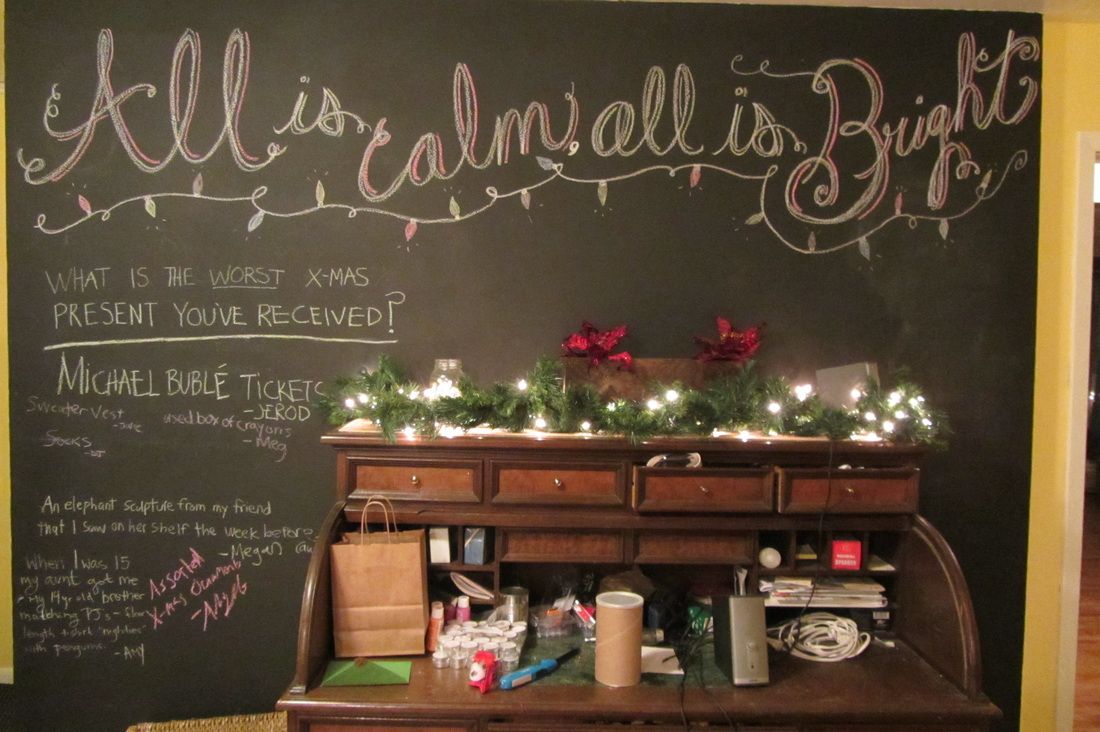 All is calm, all is Bright
WHAT IS THE WORST X-MAS
PRESENT YOU'VE RECEIVED?
MICHAEL BUBLÉ TICKETS
-JEROD
Sweater Vest
used box of crayons
- Meg
Socks
An elephant sculpture from my friend
that I saw on her shelf the week before.
- Megan
When I was 15
my aunt got me
my 14yr old brother
matching PJ's - floor
length t-shirt "nighties"
with penguins.
- AMY
Assorted
X-mas Ornaments